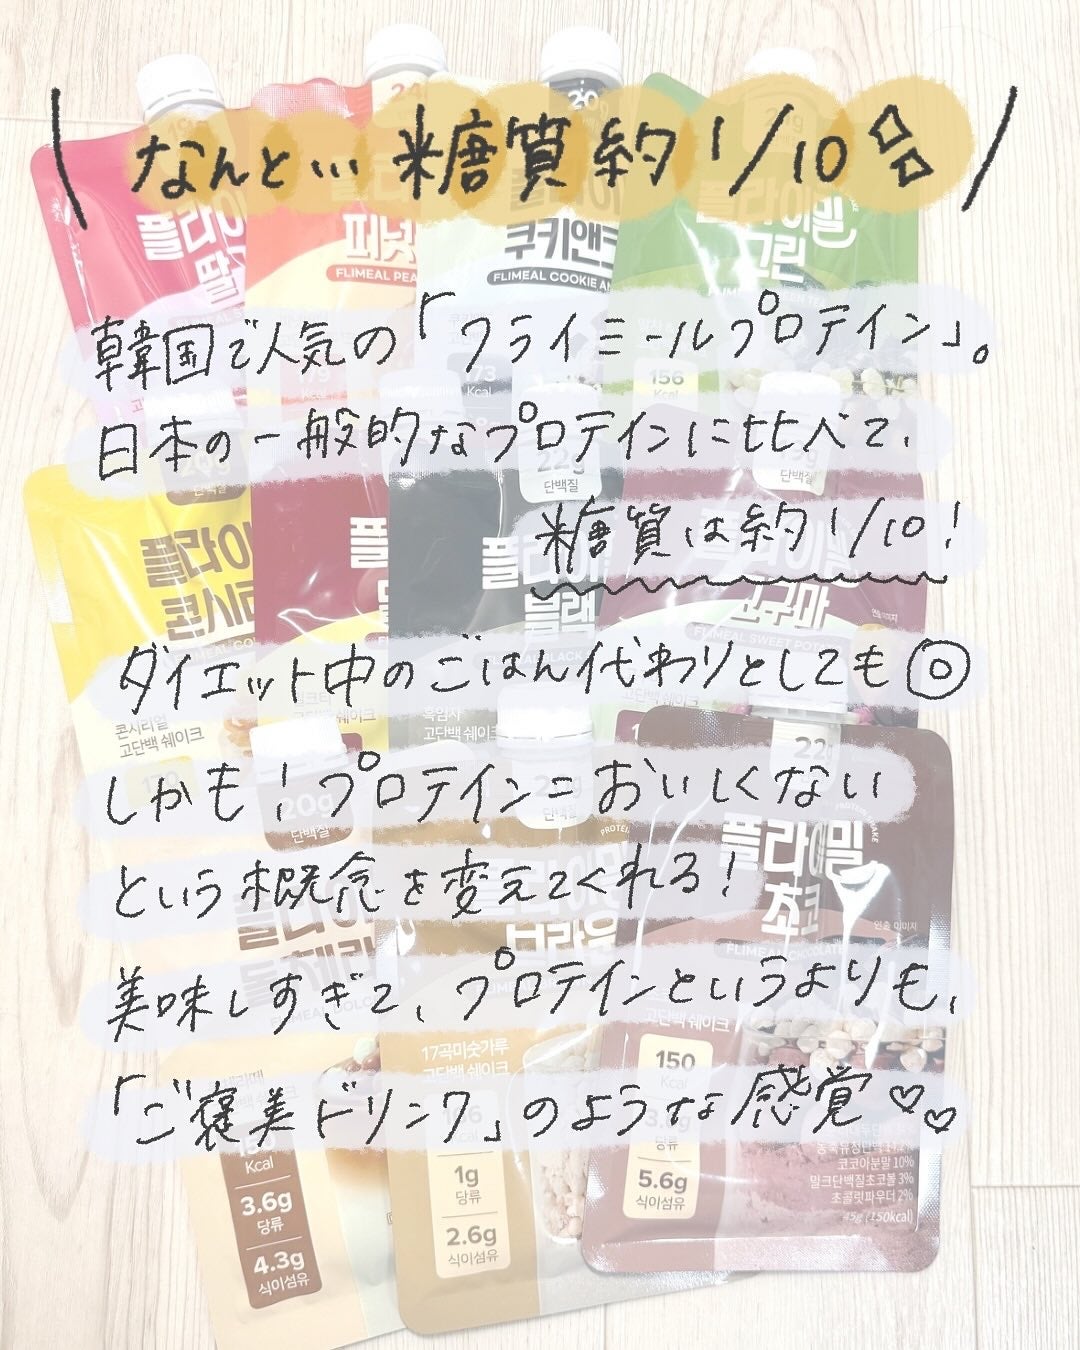 \ なんと… 糖質約1/10 /
韓国で人気の「フライミールプロテイン」。
日本の一般的なプロテインに比べて、
糖質は約1/10!
ダイエット中のごはん代わりとしても◎
しかも!プロテイン=おいしくない
という概念を変えてくれる!
美味しすぎて、プロテインというよりも、
「ご褒美ドリンク」のような感覚♡♡
쿠키앤
FLIMEAL PEA
FLIMEAL COOKIE AN
그린
156
Kcal
22g
단백질
플라이
콘시리
블랙
콘시리얼
고단백 쉐이크
흑임자
고단백 쉐이크
22g
20g
단백질
플라이밀
초코
연출 이미지
17곡미숫가루
고단백 쉐이크
고단백 쉐이크
150
Kcal
5.6g
식이섬유
Kcal
3.6g
당류
4.3g
식이섬유
1g
당류
2.6g
식이섬유
코코아분말 10%
밀크단백질초코볼 3%
초콜릿파우더 2%
45g (150kcal)